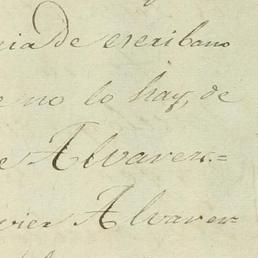 cia de escribano
e no lo hay, de
e Alvarez=
vier Alvarez